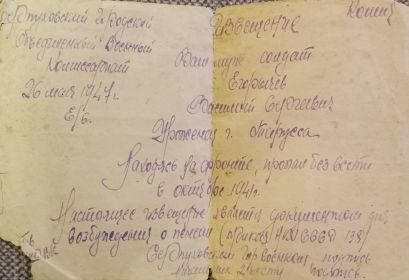 Серпуховский Городской
Объединенный Военный
Комиссариат
26 мая 1947г.
Копия
Извещение
Ваш муж солдат
Егорычев
Василий Сергеевич
Уроженец г. Таруса
Находясь на фронте, пропал без вести
в октябре 1941г.
Настоящее извещение является документом для
возбуждения о пенсии (приказ НКО СССР 138)
Серпуховский военком подпись
2 части подпись